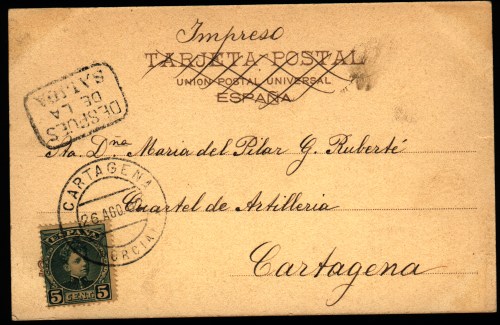 Impreso
TARJETA POSTAL
UNION POSTAL UNIVERSAL
ESPAÑA
DESPUÉS
DE LA
SALIDA
Sta. Dña Maria del Pilar G. Ruberté
Cuartel de Artilleria
Cartagena
CARTAGENA
26 AGO
MURCIA
ESPAÑA
5 CENT. 5